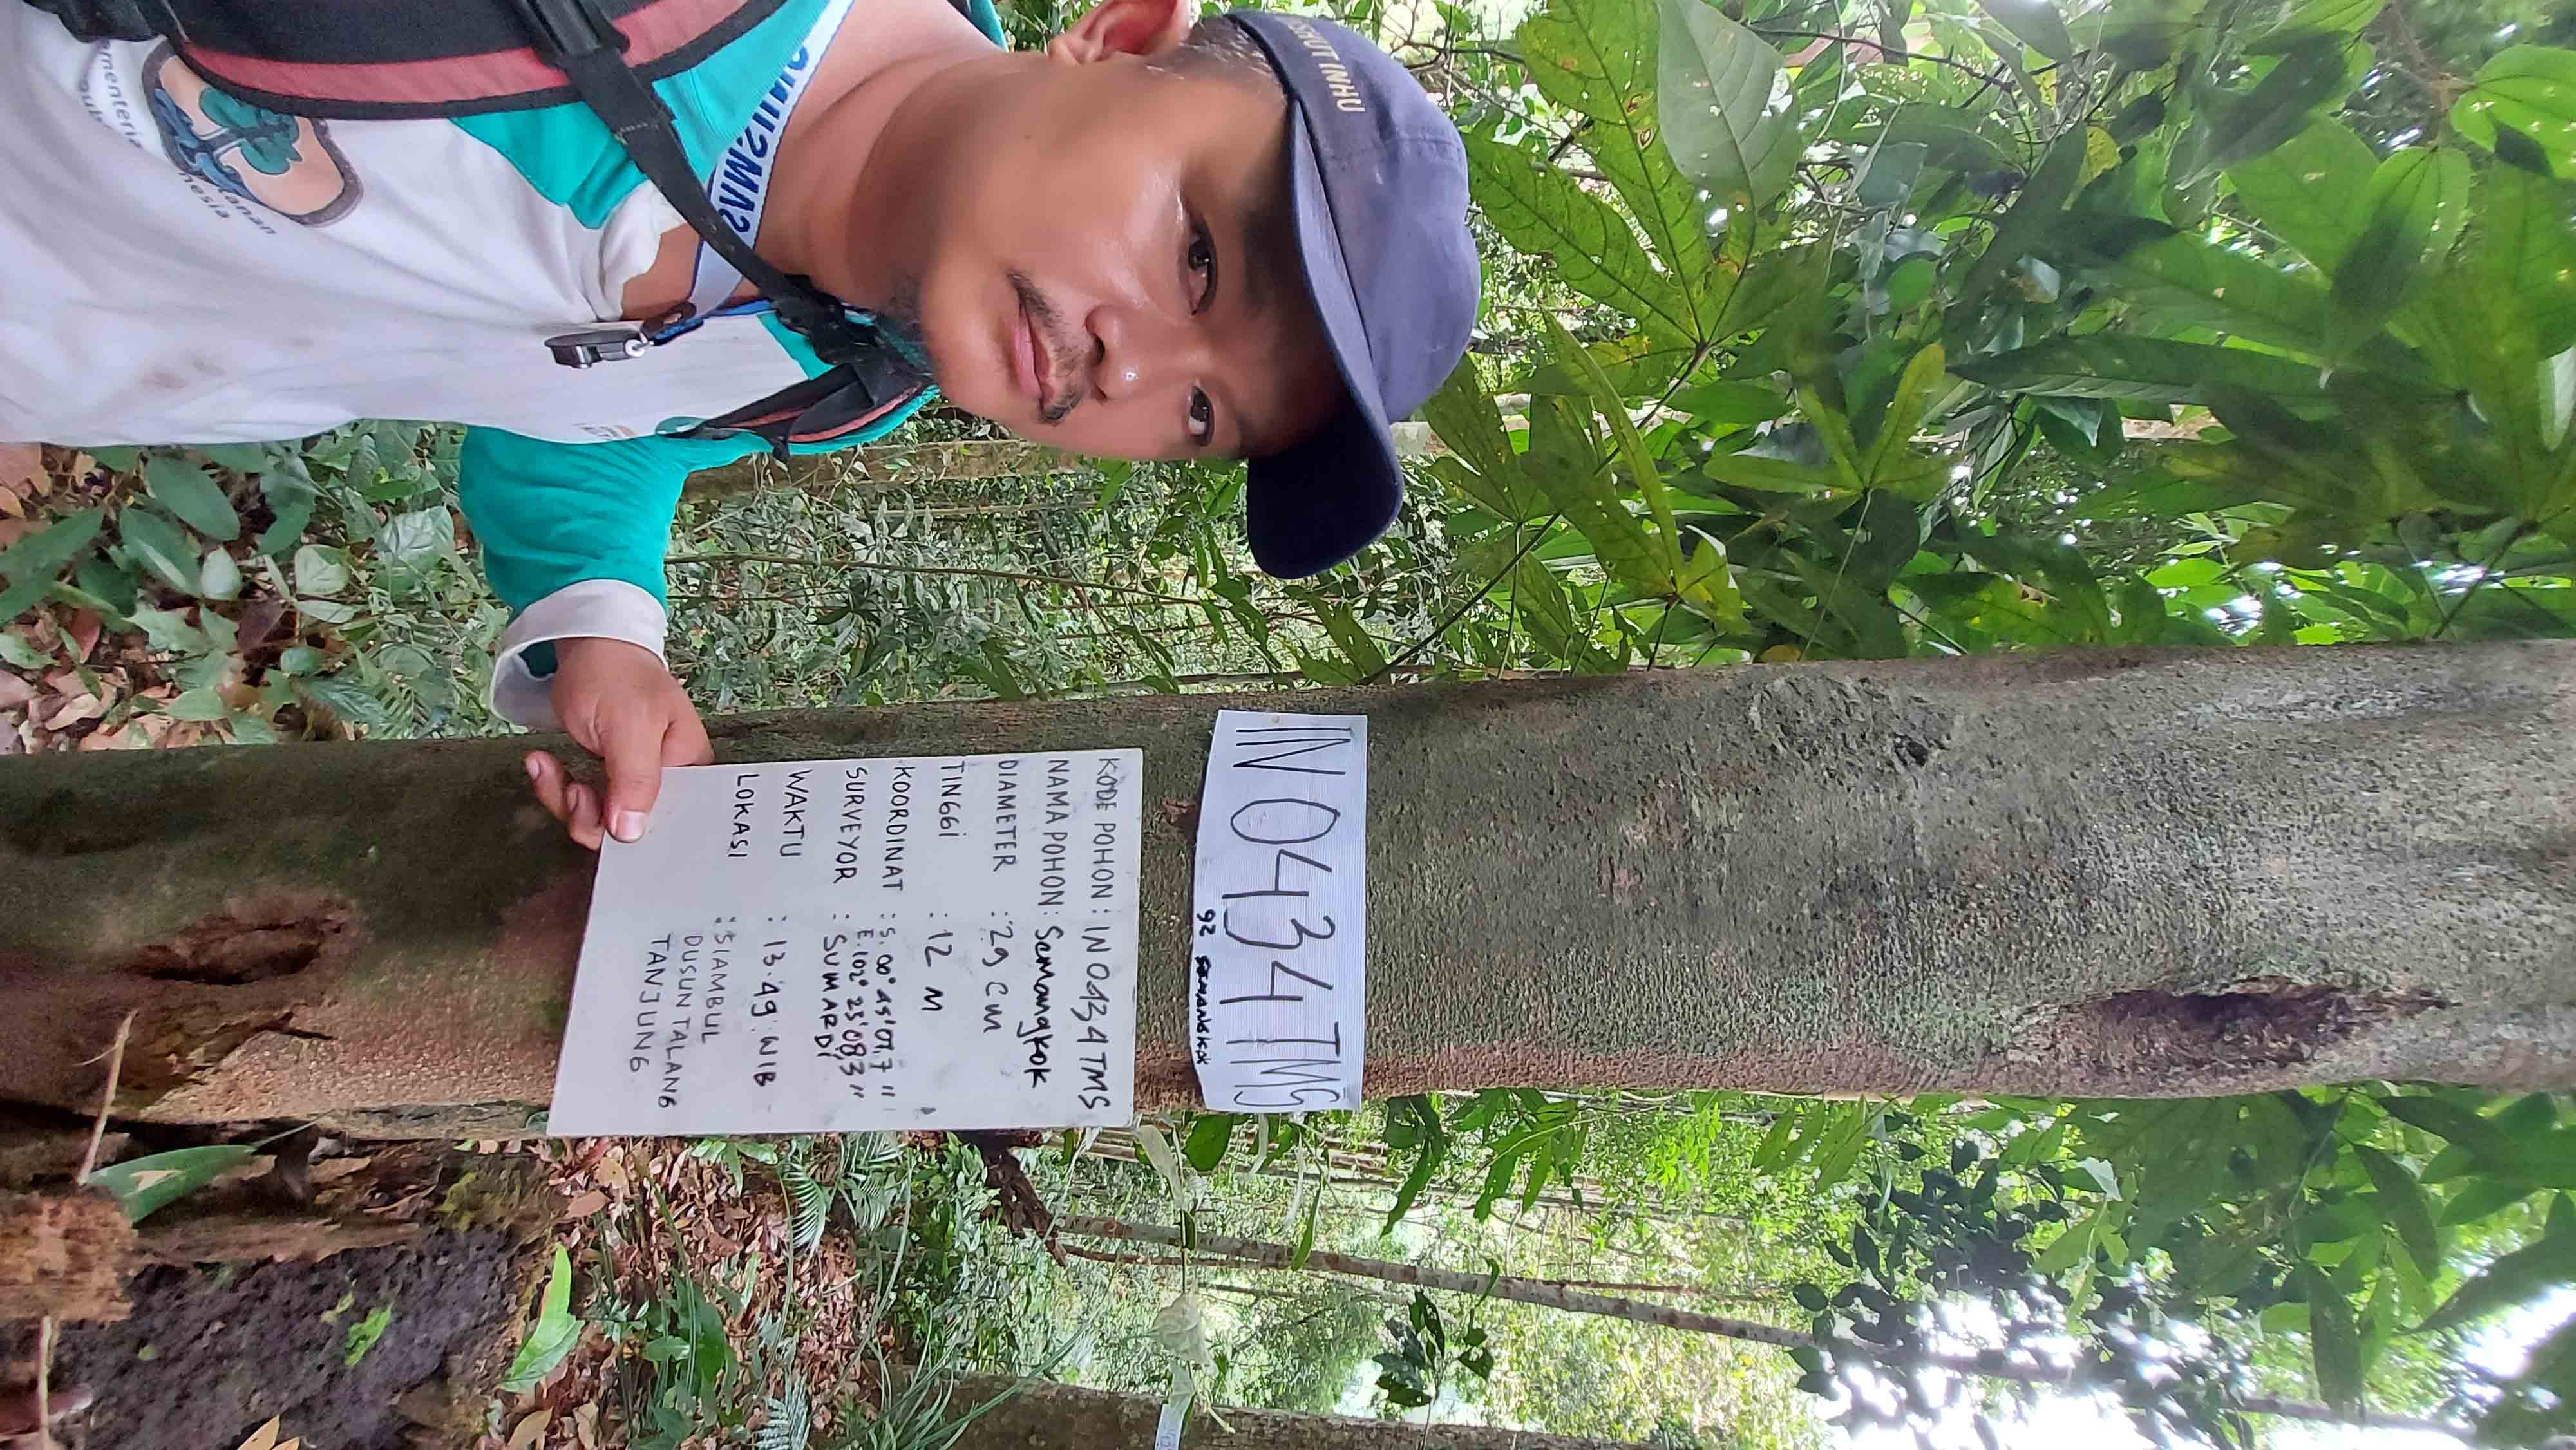 IN 0434 TMS
92 SEMANGKOK
KODE POHON : IN 0434 TMS
NAMA POHON : Semangkok
DIAMETER : 29 cm
TINGGI : 12 M
KOORDINAT : S. 00° 45' 07,7 "
E. 102° 25' 083 "
SURVEYOR : SUMARDI
WAKTU : 13.49 WIB
LOKASI : SIAMBUL
DUSUN TALANG
TANJUNG
INHU
SAMSUNG